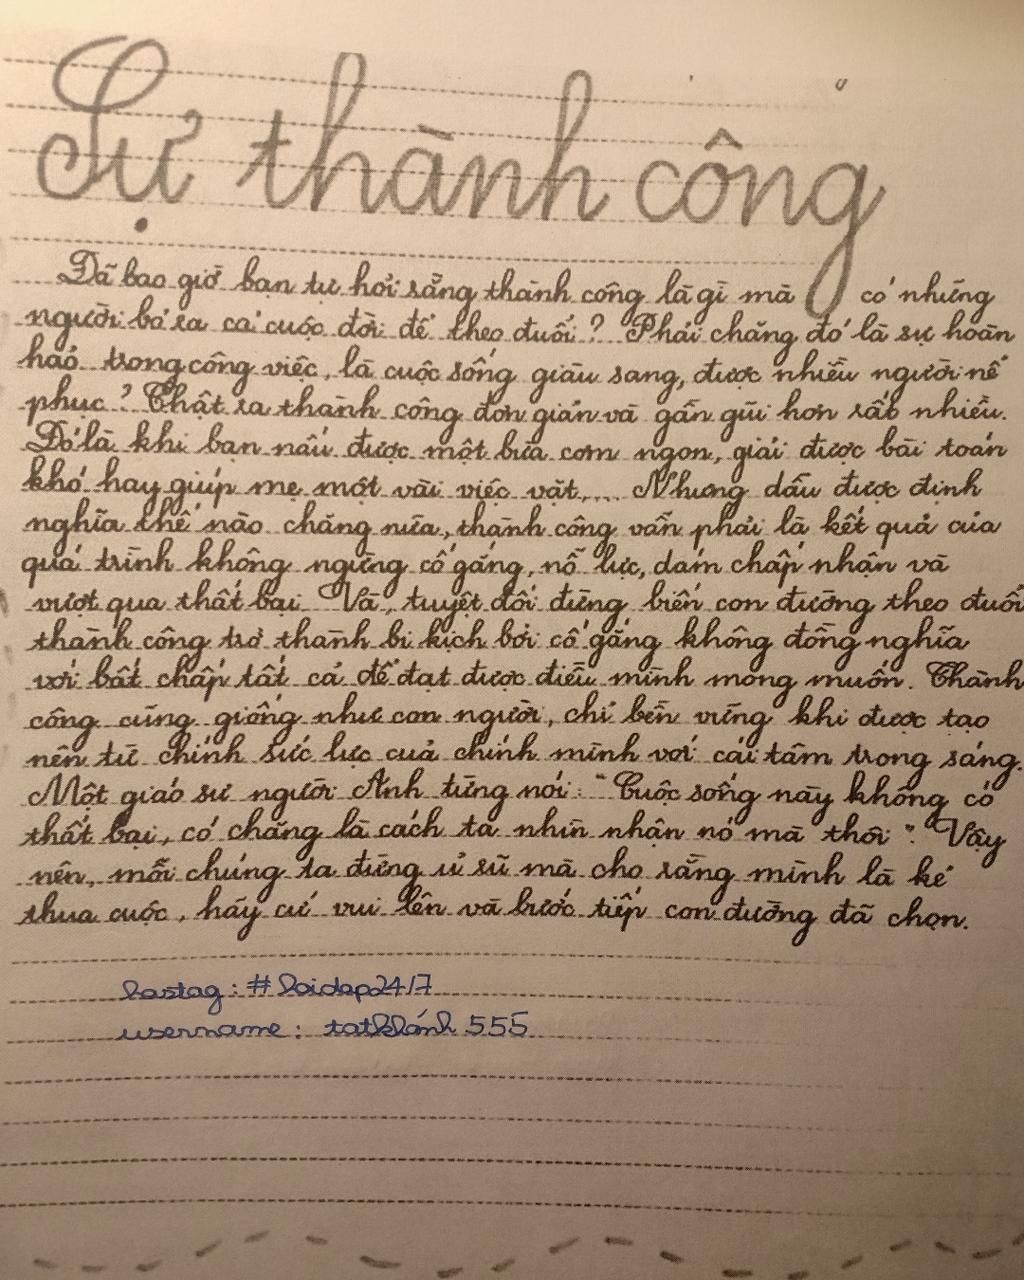 Sự thành công
Đã bao giờ bạn tự hỏi rằng thành công là gì mà có những
người bỏ ra cả cuộc đời để theo đuổi? Phải chăng đó là sự hoàn
hảo trong công việc, là cuộc sống giàu sang, được nhiều người nể
phục? Thật ra thành công đơn giản và gần gũi hơn rất nhiều.
Đó là khi bạn nấu được một bữa cơm ngon, giải được bài toán
khó hay giúp mẹ một vài việc vặt,... Nhưng dẫu được định
nghĩa thế nào chăng nữa, thành công vẫn phải là kết quả của
quá trình không ngừng cố gắng, nỗ lực, dám chấp nhận và
vượt qua thất bại. Và, tuyệt đối đừng biến con đường theo đuổi
thành công trở thành bi kịch bởi cố gắng không đồng nghĩa
với bất chấp tất cả để đạt được điều mình mong muốn. Thành
công cũng giống như con người, chỉ bền vững khi được tạo
nên từ chính sức lực của chính mình với cái tâm trong sáng.
Một giáo sư người Anh từng nói: "Cuộc sống này không có
thất bại, có chăng là cách ta nhìn nhận nó mà thôi". Vậy
nên, mỗi chúng ta đừng ủ rũ mà cho rằng mình là kẻ
thua cuộc, hãy cứ vui lên và bước tiếp con đường đã chọn.
hastag: #loidap24/7
username: tatkhánh 555